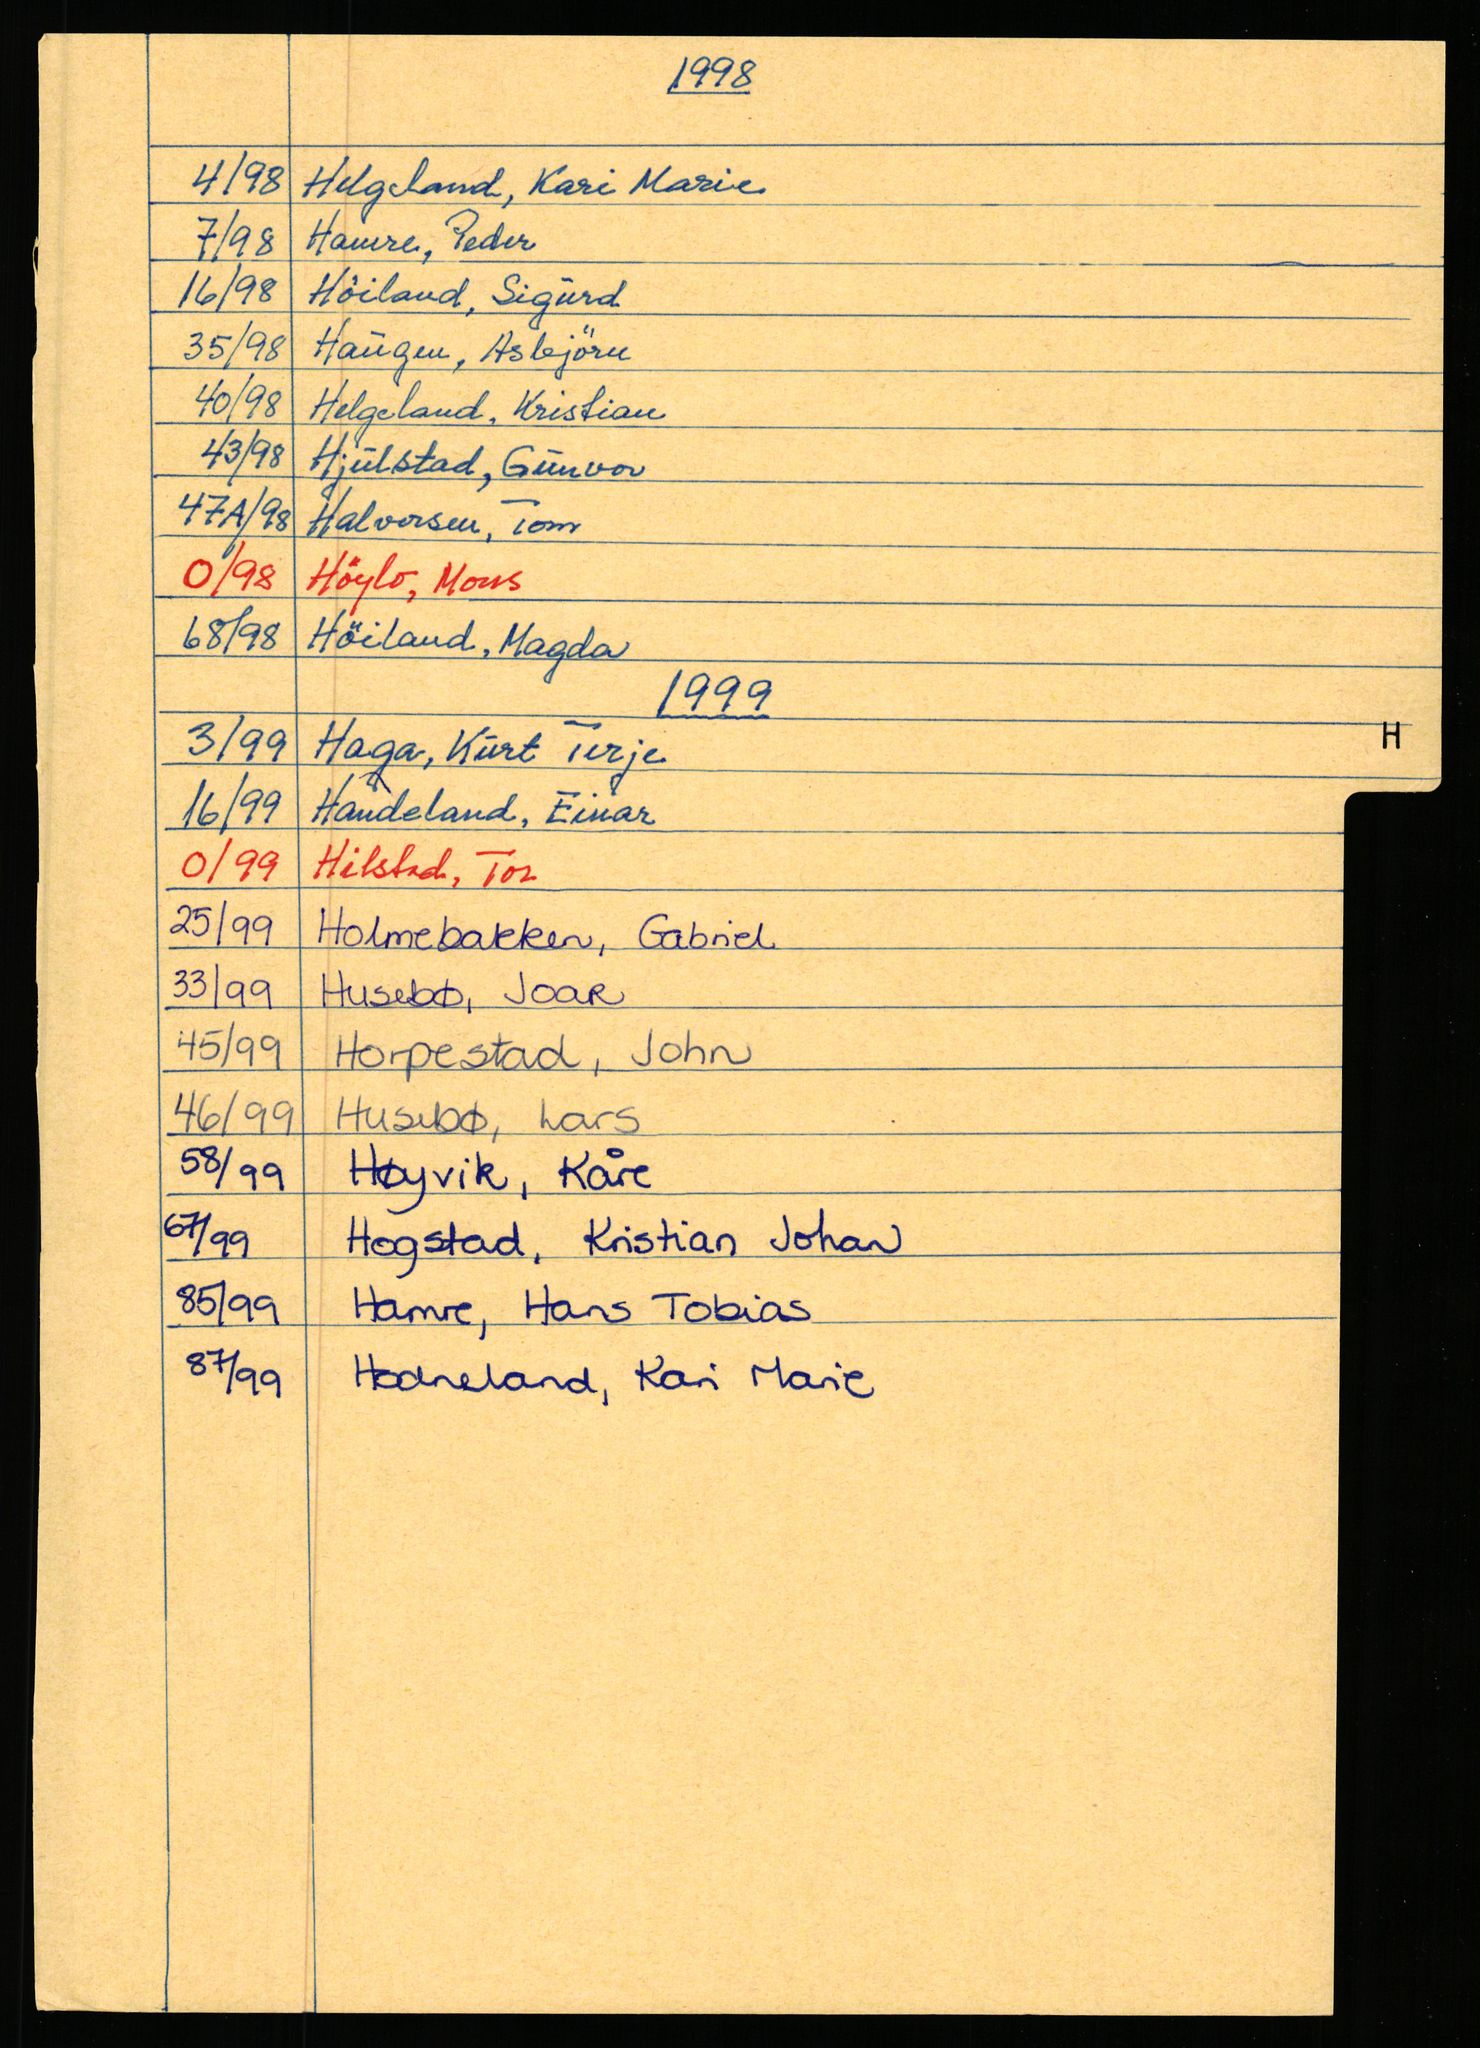 1998
4/98 Helgeland, Kari Marie
7/98 Hamre, Peder
16/98 Höiland, Sigurd
35/98 Haugen, Asbjörn
40/98 Helgeland, Kristian
43/98 Hjulstad, Gunvor
47A/98 Halvorsen, Tom
0/98 Höylo, Mons
68/98 Höiland, Magda
1999
3/99 Haga, Kurt Terje
H
16/99 Haudeland, Einar
0/99 Hilstad, Tor
25/99 Holmebakken, Gabriel
33/99 Husebø, Joar
45/99 Horpestad, John
46/99 Husebø, Lars
58/99 Høyvik, Kåre
67/99 Hogstad, Kristian Johan
85/99 Hamre, Hans Tobias
87/99 Hodneland, Kari Marie